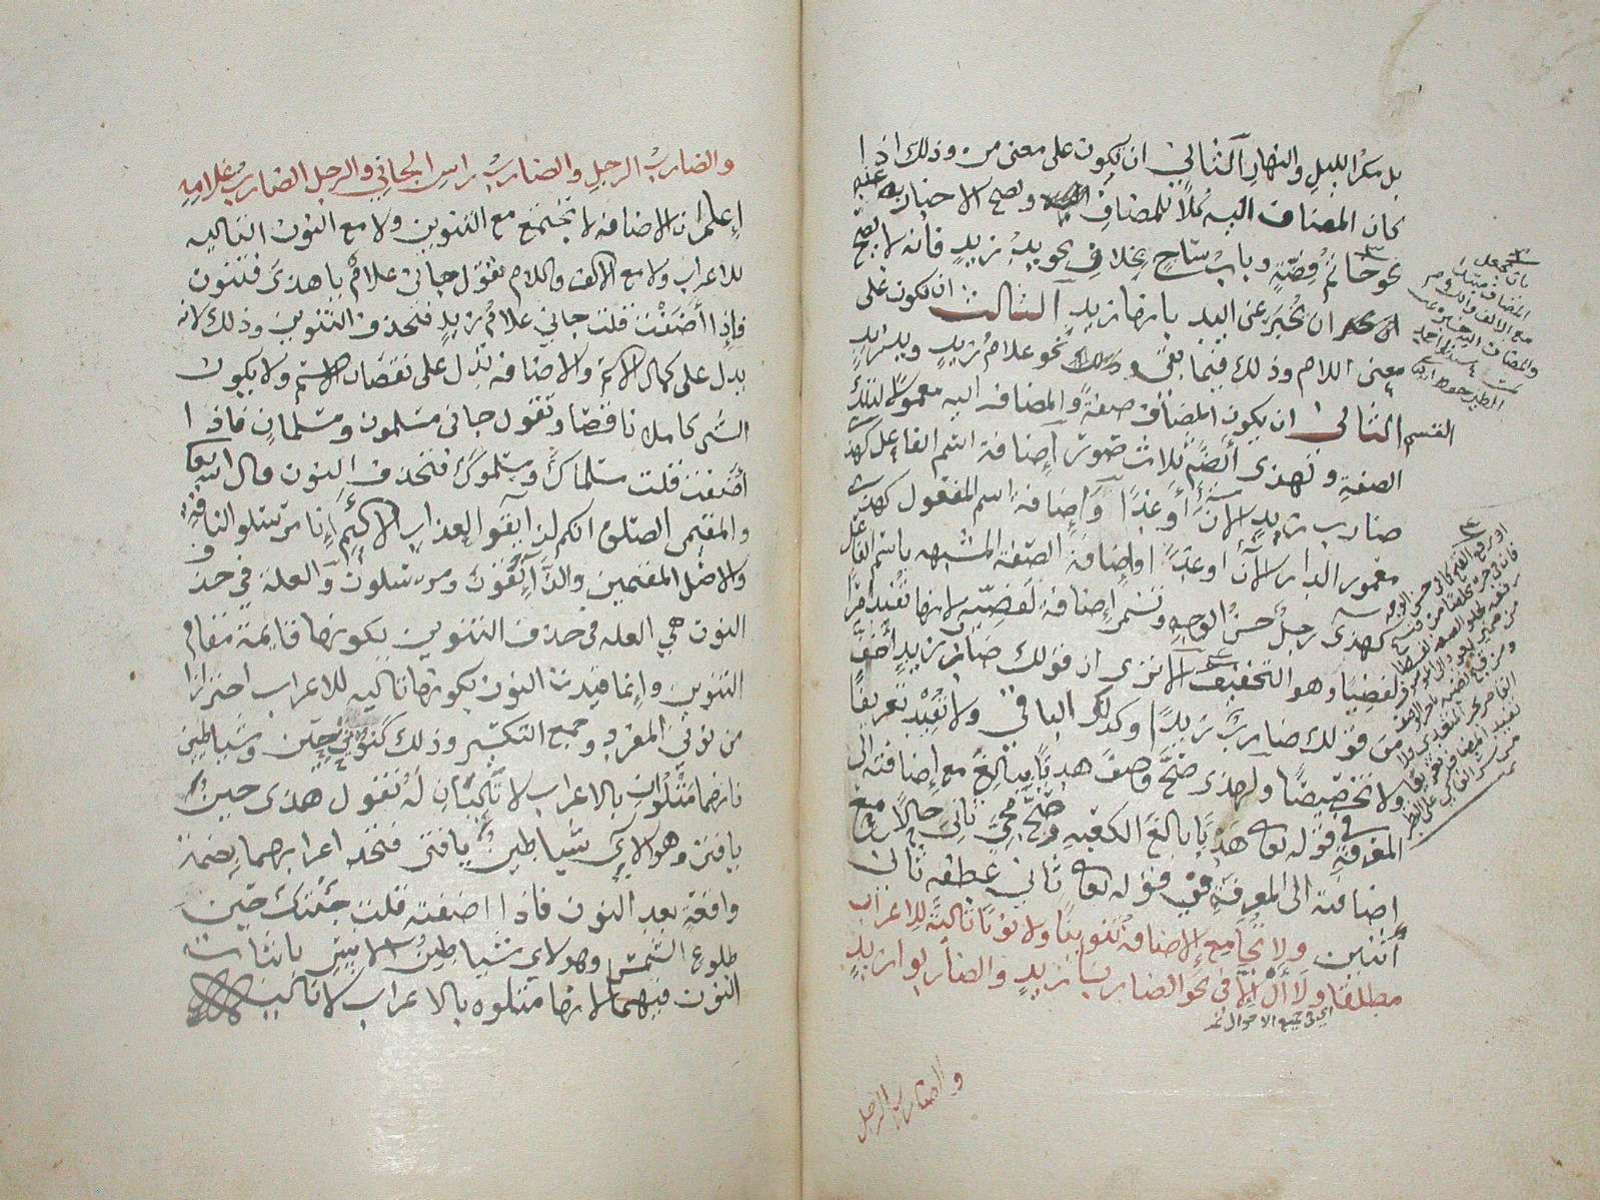 بل مكر الليل والنهار الثاني ان يكون على معنى من وذلك اذا
كان المضاف اليه كلا للمضاف وصح الاخبار به عنه
نحو خاتم فضة وباب ساج بخلاف نحو يد زيد فانه لا يصح
ان يخبر عن اليد بانها زيد الثالث ان تكون على
معنى اللام وذلك فيما بقي نحو غلام زيد ويد زيد
القسم الثاني ان يكون المضاف صفة والمضاف اليه معمولا لتلك
الصفة ولهذى ايضا ثلاث صور اضافة اسم الفاعل كهذى
ضارب زيد الان او غدا واضافة اسم المفعول كهذى
معمور الدار الان او غدا واضافة الصفة المشبهه باسم الفاعل
كهذى رجل حسن الوجه وتسمى اضافة لفضية لانها تفيد امرا
لفضيا وهو التخفيف الا ترى ان قولك ضارب زيد اخف
من قولك ضارب زيدا وكذلك الباقي ولا تفيد تعريفا
ولا تخصيصا ولهذى صح وصف هديا ببالغ مع اضافته الى
المعرفة في قوله تعا هديا بالغ الكعبه وصح مجي ثاني حالا مع
اضافته الى المعرفة في قوله تعا ثاني عطفه ثاني
اثنين ولا تجامع الاضافة تنوينا ولا نونا تالية للاعراب
مطلقا ولا ال الا في نحو الضاربا زيد والضاربوا زيد
اي في جميع الاحوال
والضارب الرجل
والضارب الرجل والضارب راس الجاني والرجل الضارب غلامه
اعلم ان الاضافة لا تجتمع مع التنوين ولا مع النون التاليه
للاعراب ولا مع الالف واللام تقول جاني غلام يا هذى فتنون
فاذا اضفت قلت جاني غلام زيد فتحذف التنوين وذلك لانه
يدل على كمال الاسم والاضافه تدل على نقصان الاسم ولا يكون
الشي كاملا ناقصا وتقول جاني مسلمون ومسلمان فاذا
اضفت قلت مسلماك ومسلموك فتحذف النون قال الله تعا
والمقيمي الصلوة انكم لذايقوا العذاب الاليم انا مرسلوا الناقة
والاصل المقيمين والذايقون ومرسلون والعلة في حذف
النون هي العله في حذف التنوين لكونها قايمة مقام
التنوين وانما قيدت النون بكونها تاليه للاعراب احترازا
من نوني المفرد وجمع التكسير وذلك كنوني حين وشياطين
فانهما متلوان بالاعراب لا تاليتان له تقول هذى حين
يا فتى وهولاي شياطين يا فتى فتجد اعرابهما بضمة
واقعة بعد النون فاذا اضفته قلت جئتك حين
طلوع الشمس وهولاي شياطين الانس باثبات
النون فيهما لانها متلوه بالاعراب لا تالية